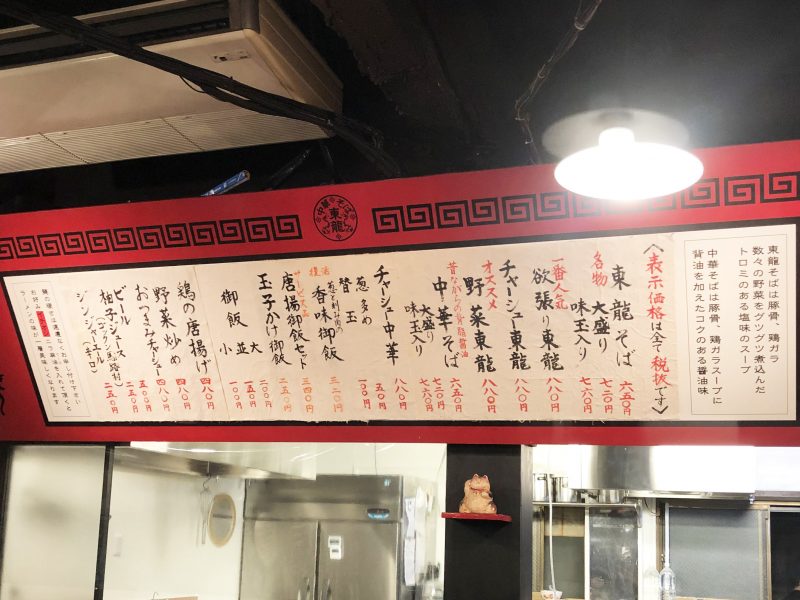 東龍そばは豚骨、鶏ガラ
数々の野菜をグツグツ煮込んだ
トロミのある塩味のスープ
中華そばは豚骨、鶏ガラスープに
背油を加えたコクのある醤油味
〈表示価格は全て税抜です〉
名物 東龍そば 六五〇円
大盛り 七二〇円
味玉入り 七六〇円
一番人気 欲張り東龍 八八〇円
チャーシュー東龍 八八〇円
オススメ 野菜東龍 八八〇円
昔ながらの背脂醤油
中華そば 六五〇円
大盛り 七二〇円
味玉入り 七六〇円
チャーシュー中華 八八〇円
葱多め 五〇円
替玉 一〇〇円
復活
香味御飯 三二〇円
唐揚御飯セット 三四〇円
玉子かけ御飯 二五〇円
御飯 大 二〇〇円
並 一五〇円
小 一〇〇円
鶏の唐揚げ 四八〇円
野菜炒め 四八〇円
おつまみチャーシュー 五〇〇円
ビール 五五〇円
柚子ジュース
(ゴックン馬路村) 二五〇円
(ジンジャーエール) 二五〇円
麺の硬さは遠慮なくお申し付け下さい
ラーメンの味が一層美味しくなります
中華そば 東龍